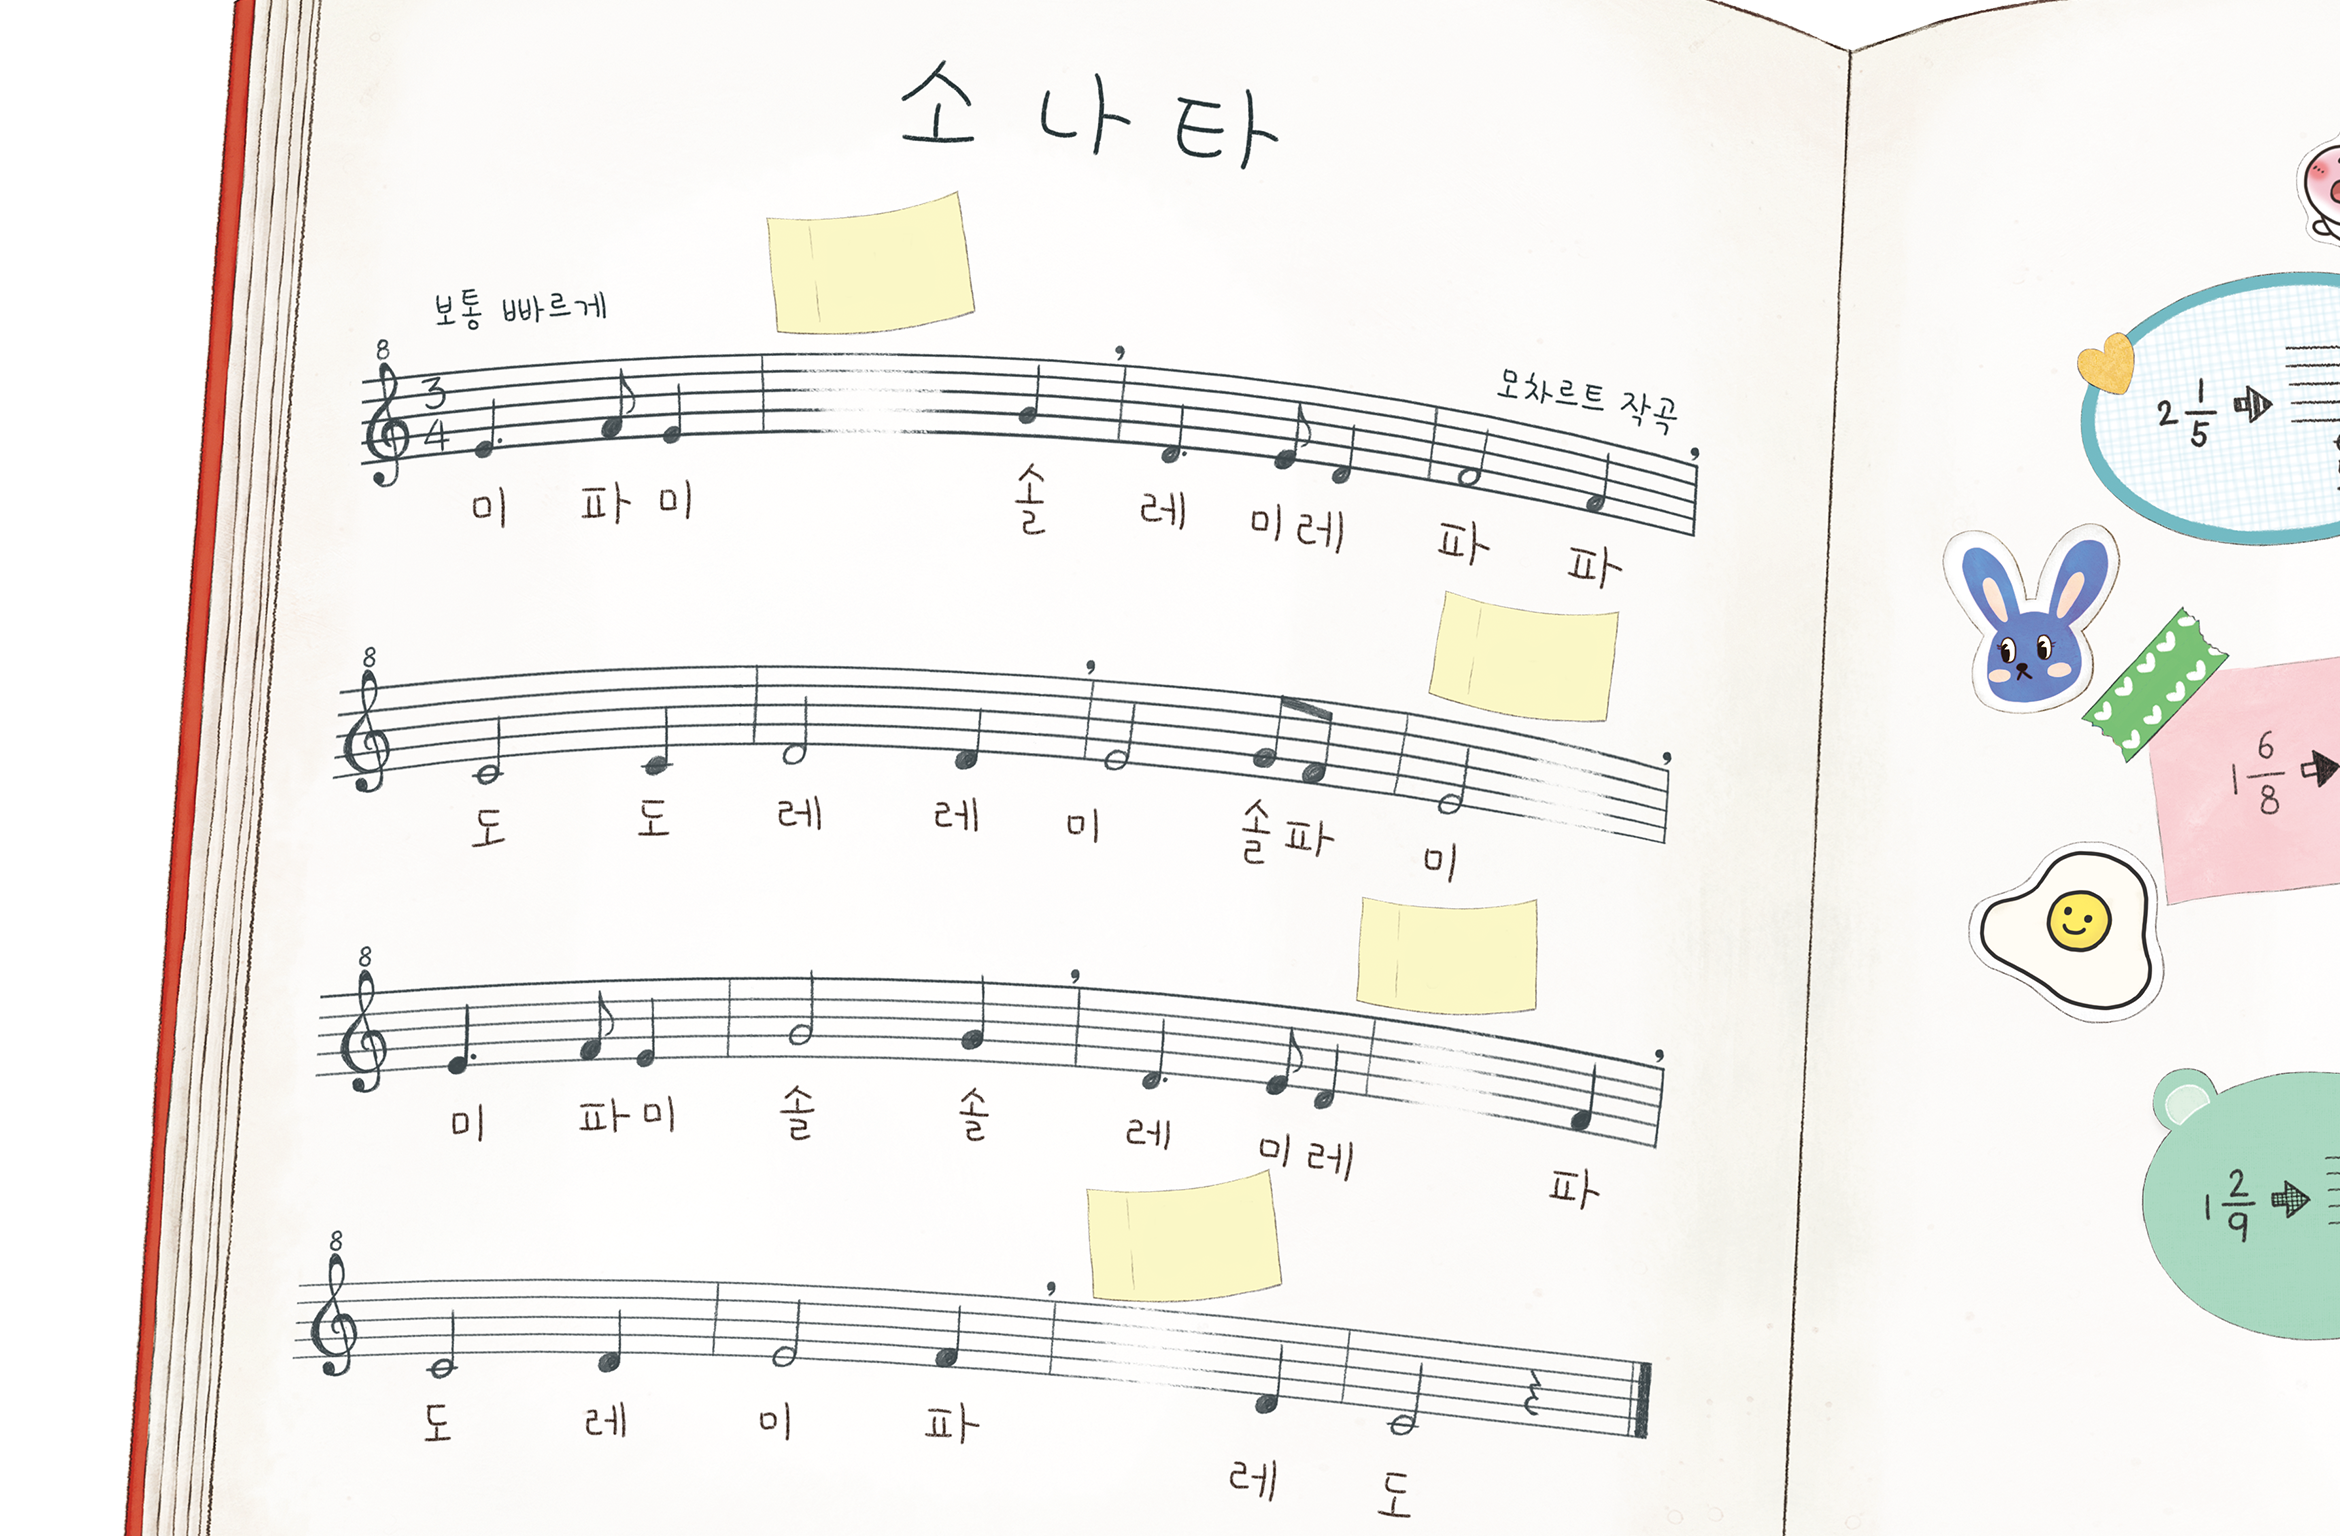 소나타
보통 빠르게
모차르트 작곡
8
3
4
미 파 미 솔 레 미 레 파 파
8
도 도 레 레 미 솔 파 미
8
미 파 미 솔 솔 레 미 레 파
8
도 레 미 파 레 도
2 1/5
1 6/8
1 2/9